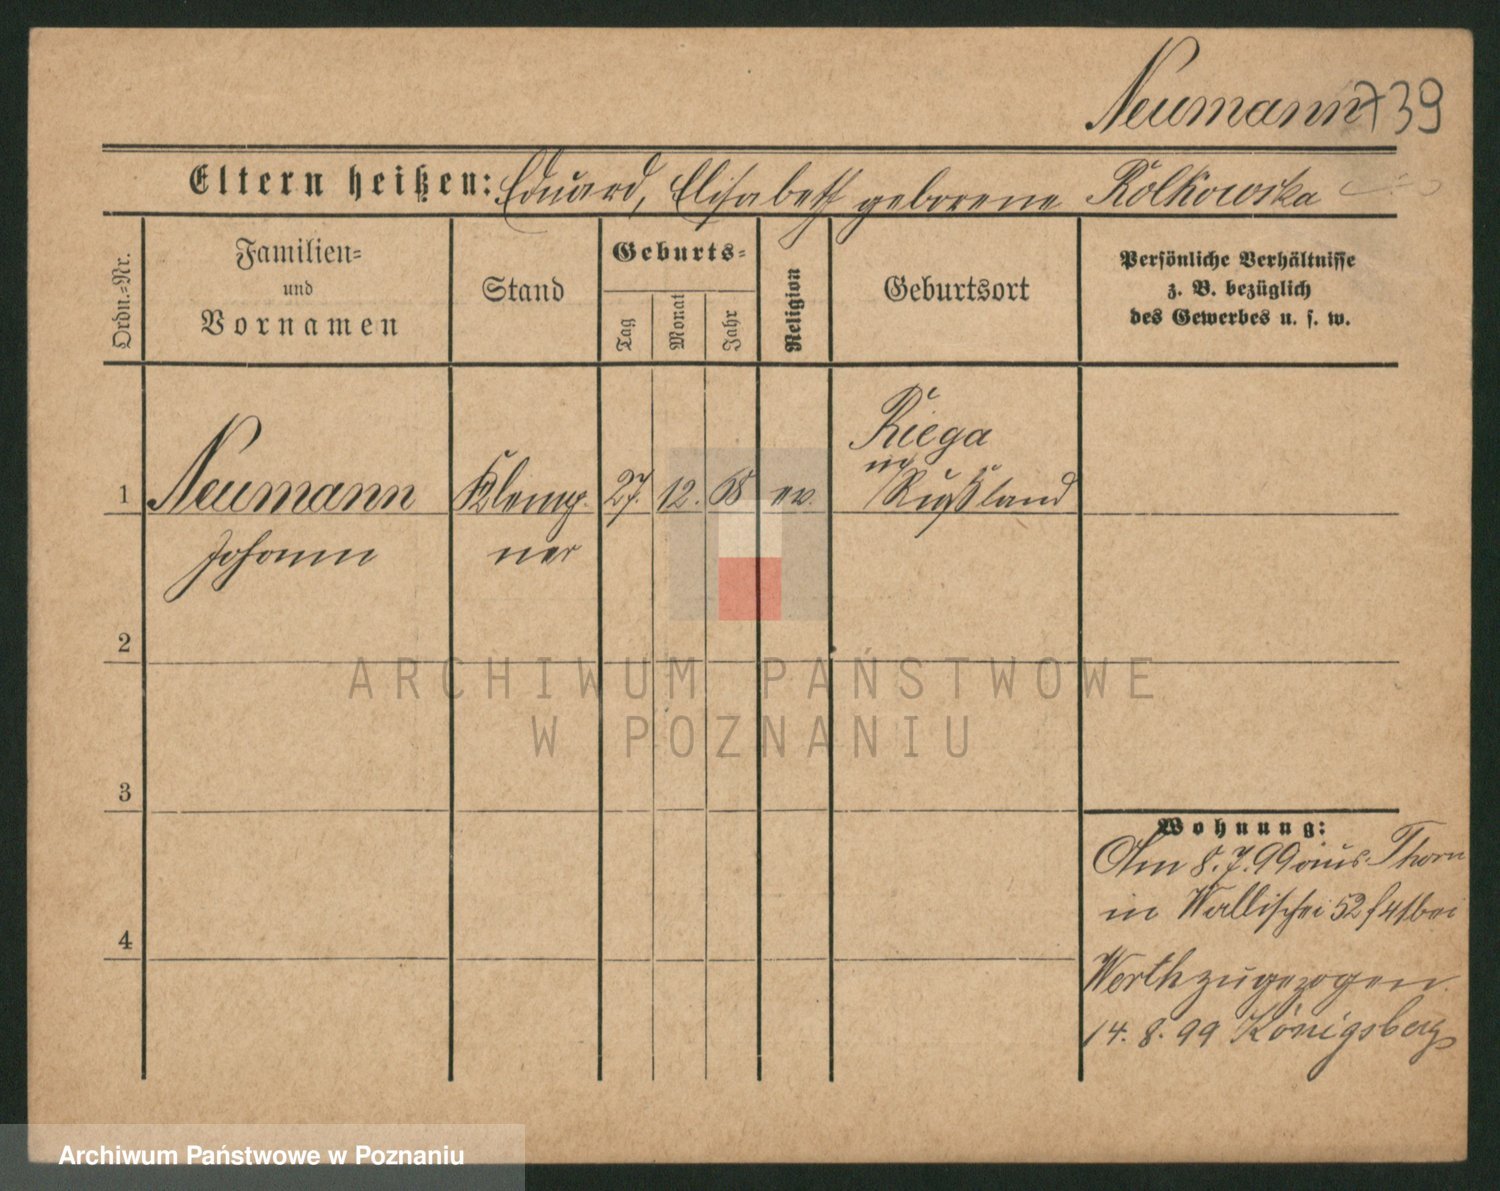 Neumann 739
Eltern heißen: Eduard, Elisabeth geborene Rolkowska
Ordn.-Nr.
Familien-
und
Vornamen
Stand
Geburts-
Tag
Monat
Jahr
Religion
Geburtsort
Persönliche Verhältnisse
z. B. bezüglich
des Gewerbes u. s. w.
1 Neumann Klemp- 27. 12. 68 ev. Riega
in Rußland
Johann ner
2
3
4
Wohnung:
Am 8.7.99 aus Thorn
in Wallischei 52 bei
Werth zugezogen.
14. 8. 99 Königsberg
ARCHIWUM PAŃSTWOWE
W POZNANIU
Archiwum Państwowe w Poznaniu